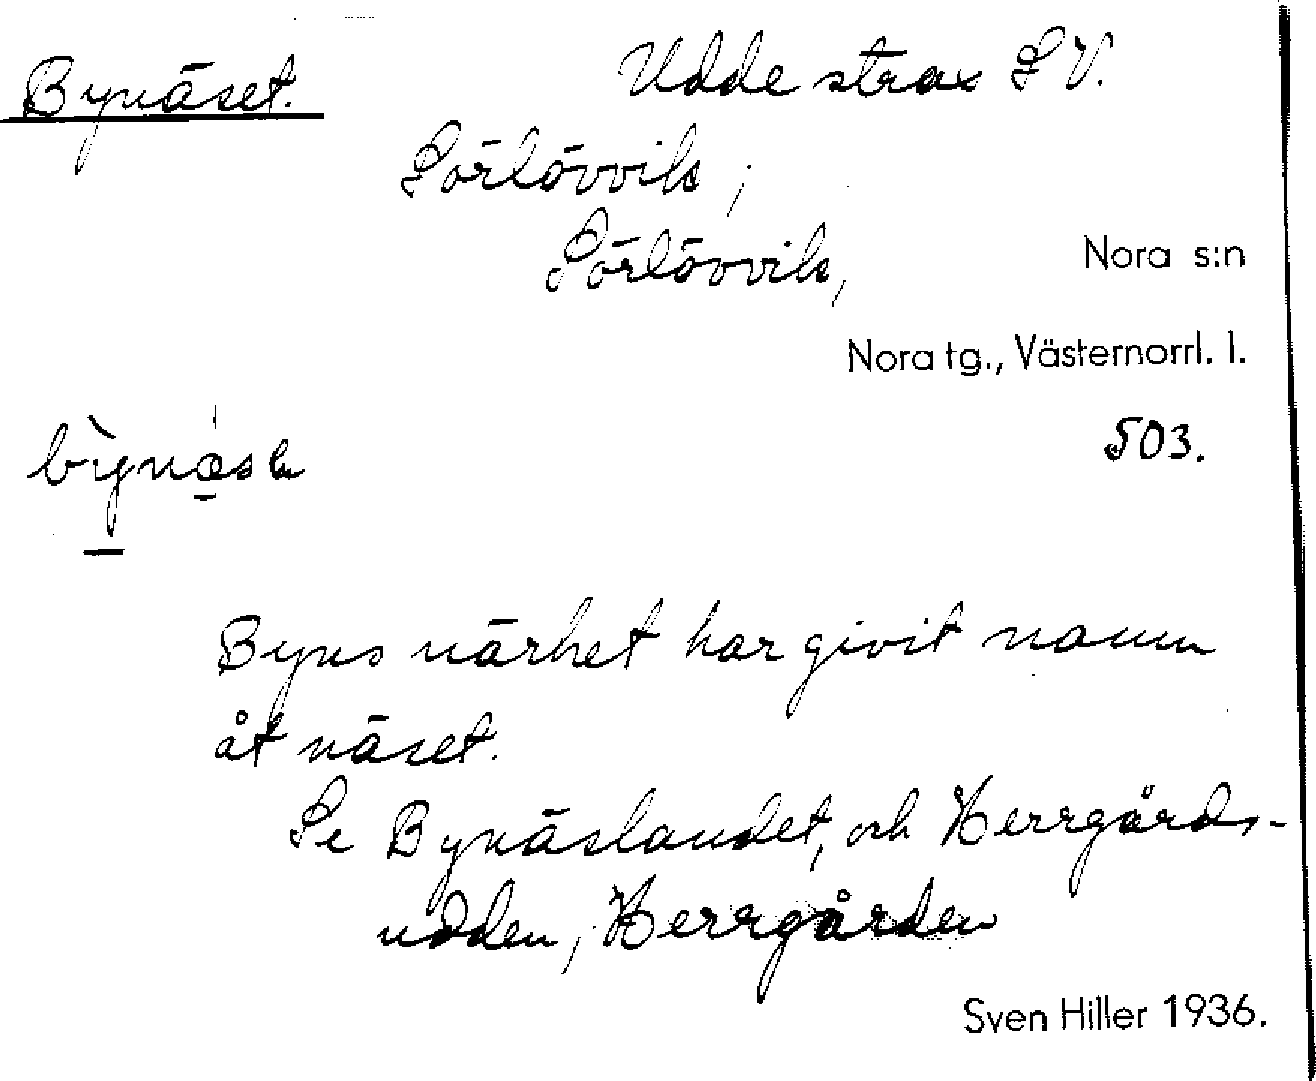 Bynäset. Udde strax SV.
Sörlövvik ;
Sörlövvik,
Nora s:n
Nora tg., Västernorrl. l.
503.
Byns närhet har givit namn
åt näset.
Se Bynäslandet, och Herrgårds-
udden, Herrgården
Sven Hiller 1936.